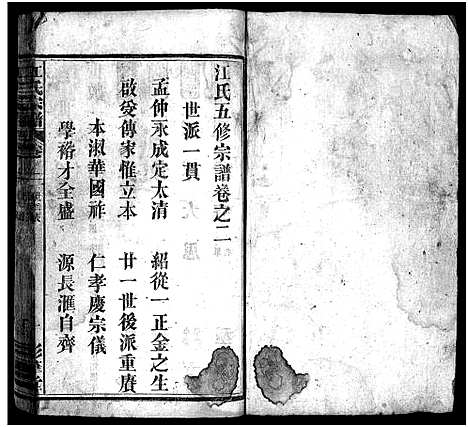 江氏五修宗譜卷之二
世派一貫
孟仲永成定太清　紹從一正金之生
啟爰傳家惟立本　廿一世後派重賡
本淑華國祚　仁孝慶宗儀
學裕才全盛　源長滙自齊